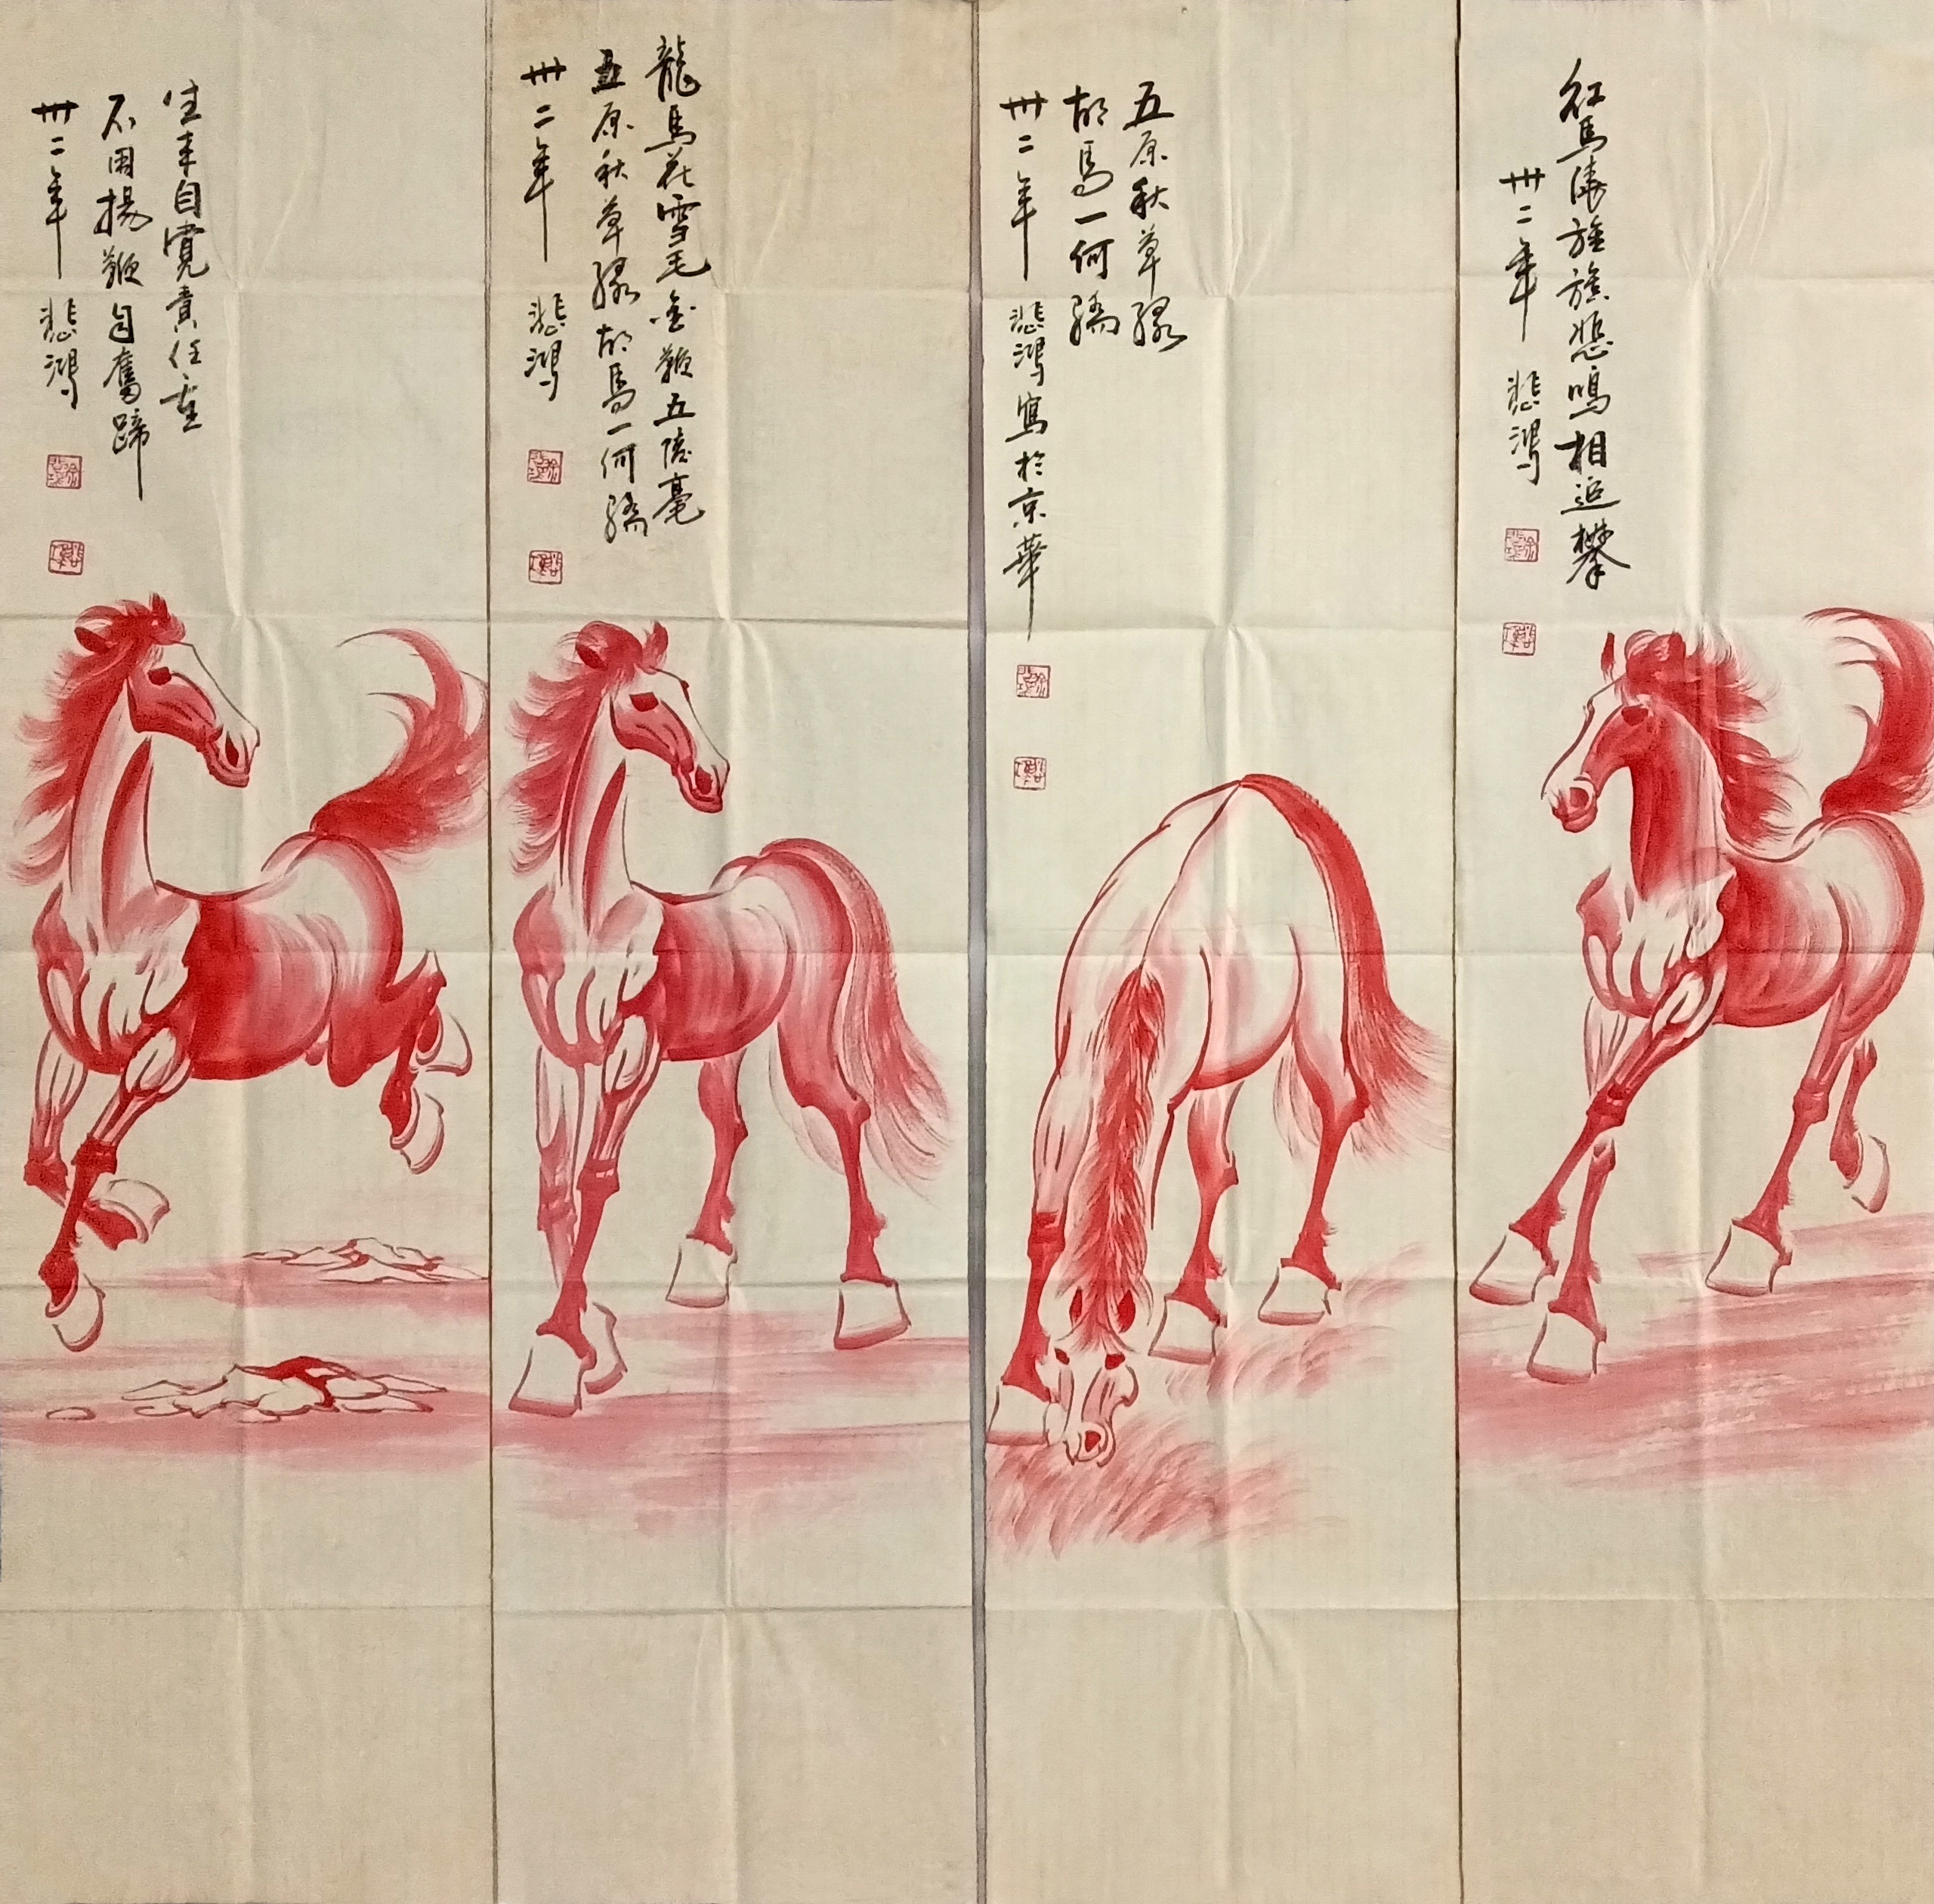 紅馬旌旗悲鳴相追攀
卅二年 悲鴻
五原秋草綠
胡馬一何驕
卅二年 悲鴻寫於京華
龍馬花雪毛金鞭五陵毫
五原秋草綠胡馬一何驕
卅二年 悲鴻
生來自覺責任重
不用揚鞭自奮蹄
卅二年 悲鴻